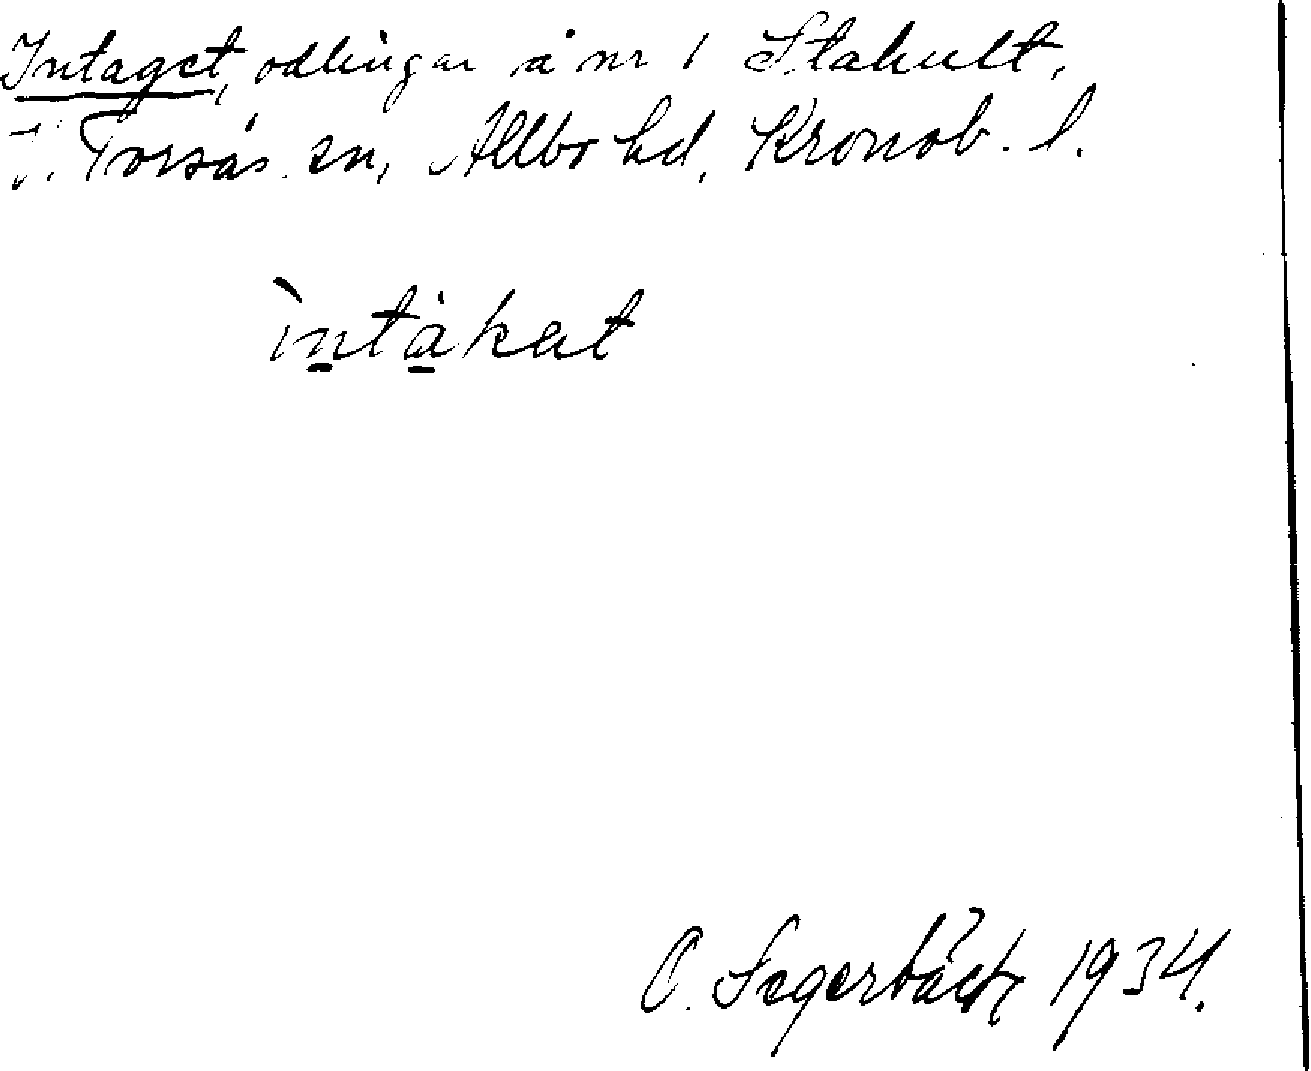 Intaget, odlingar å nr 1 Stakult,
V. Torsås sn, Allbo hd, Kronob. l.
ìntàkat
O. Segerbäck 1934.